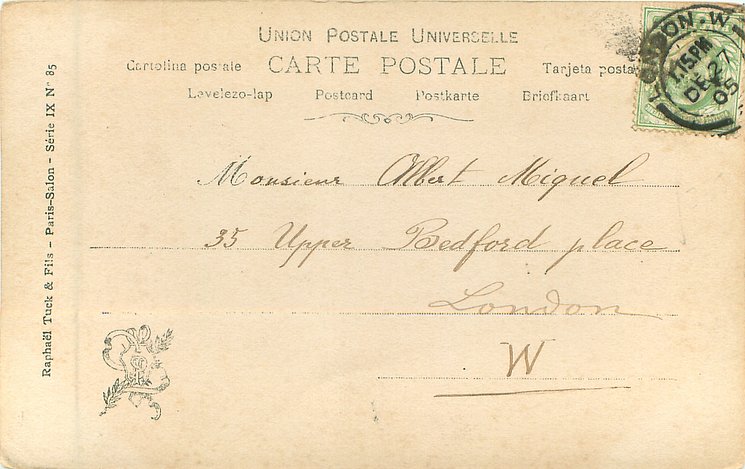 UNION POSTALE UNIVERSELLE
Cartolina postale CARTE POSTALE Tarjeta postal
Levelezo-lap Postcard Postkarte Briefkaart
LONDON.W.
7.15.PM
DE 27
05
Monsieur Albert Miquel
35 Upper Bedford place
London
W
Raphaël Tuck & Fils - Paris-Salon - Série IX Nº 85